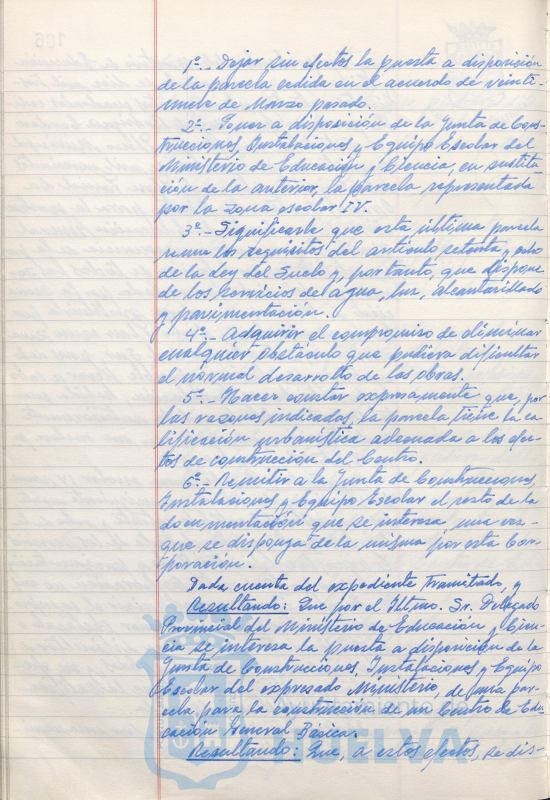 1º.- Dejar sin efectos la puesta a disposición
de la parcela cedida en el acuerdo de veinti-
nueve de Marzo pasado.
2º.- Poner a disposición de la Junta de Cons-
trucciones, Instalaciones y Equipo Escolar del
Ministerio de Educación y Ciencia, en sustitu-
ción de la anterior, la parcela representada
por la zona escolar IV.
3º.- Significarle que esta última parcela
reune los requisitos del artículo setenta y ocho
de la Ley del Suelo y, por tanto, que dispone
de los servicios de agua, luz, alcantarillado
y pavimentación.
4º.- Adquirir el compromiso de eliminar
cualquier obstáculo que pudiera dificultar
el normal desarrollo de las obras.
5º.- Hacer constar expresamente que, por
las razones indicadas, la parcela tiene la ca-
lificación urbanística adecuada a los efec-
tos de construcción del Centro.
6º.- Remitir a la Junta de Construcciones,
Instalaciones y Equipo Escolar el resto de la
documentación que se interesa, una vez
que se disponga de la misma por esta Cor-
poración.
Dada cuenta del expediente tramitado, y
Resultando: Que por el Iltmo. Sr. Delegado
Provincial del Ministerio de Educación y Cien-
cia se interesa la puesta a disposición de la
Junta de Construcciones, Instalaciones y Equipo
Escolar del expresado Ministerio, de una par-
cela para la construcción de un Centro de Edu-
cación General Básica.
Resultando: Que, a estos efectos, se dis-
HUELVA